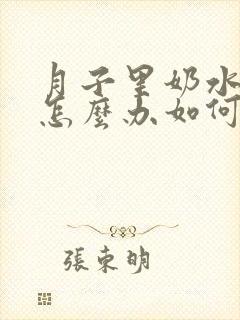 月子里奶水
怎麼办如何
張東明